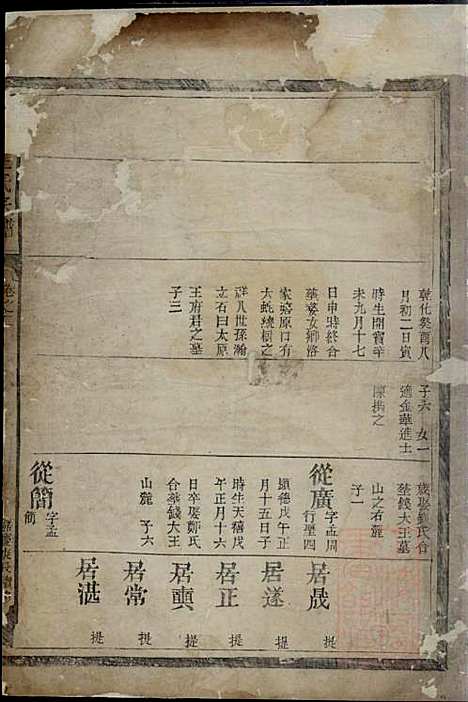 乾化癸酉八
月初二日寅
時生開寶辛
未九月十七
日申時終合
葬婺女鄉洛
家塢原口有
大蛇繞樹之
祥八世孫瀚
立石曰太原
王府君之墓
子三
子六 女一
適金華進士
陳橋之
葬錢大王墓
山之右麓
子一
從廣 字孟周
行聖四
顯德戊午正
月十五日子
時生天禧戊
午正月十六
日卒娶鄭氏
合葬錢大王
山麓 子六
從簡 字孟
簡
居晟 提
居遂 提
居正 提
居奭 提
居常 提
居湛 提